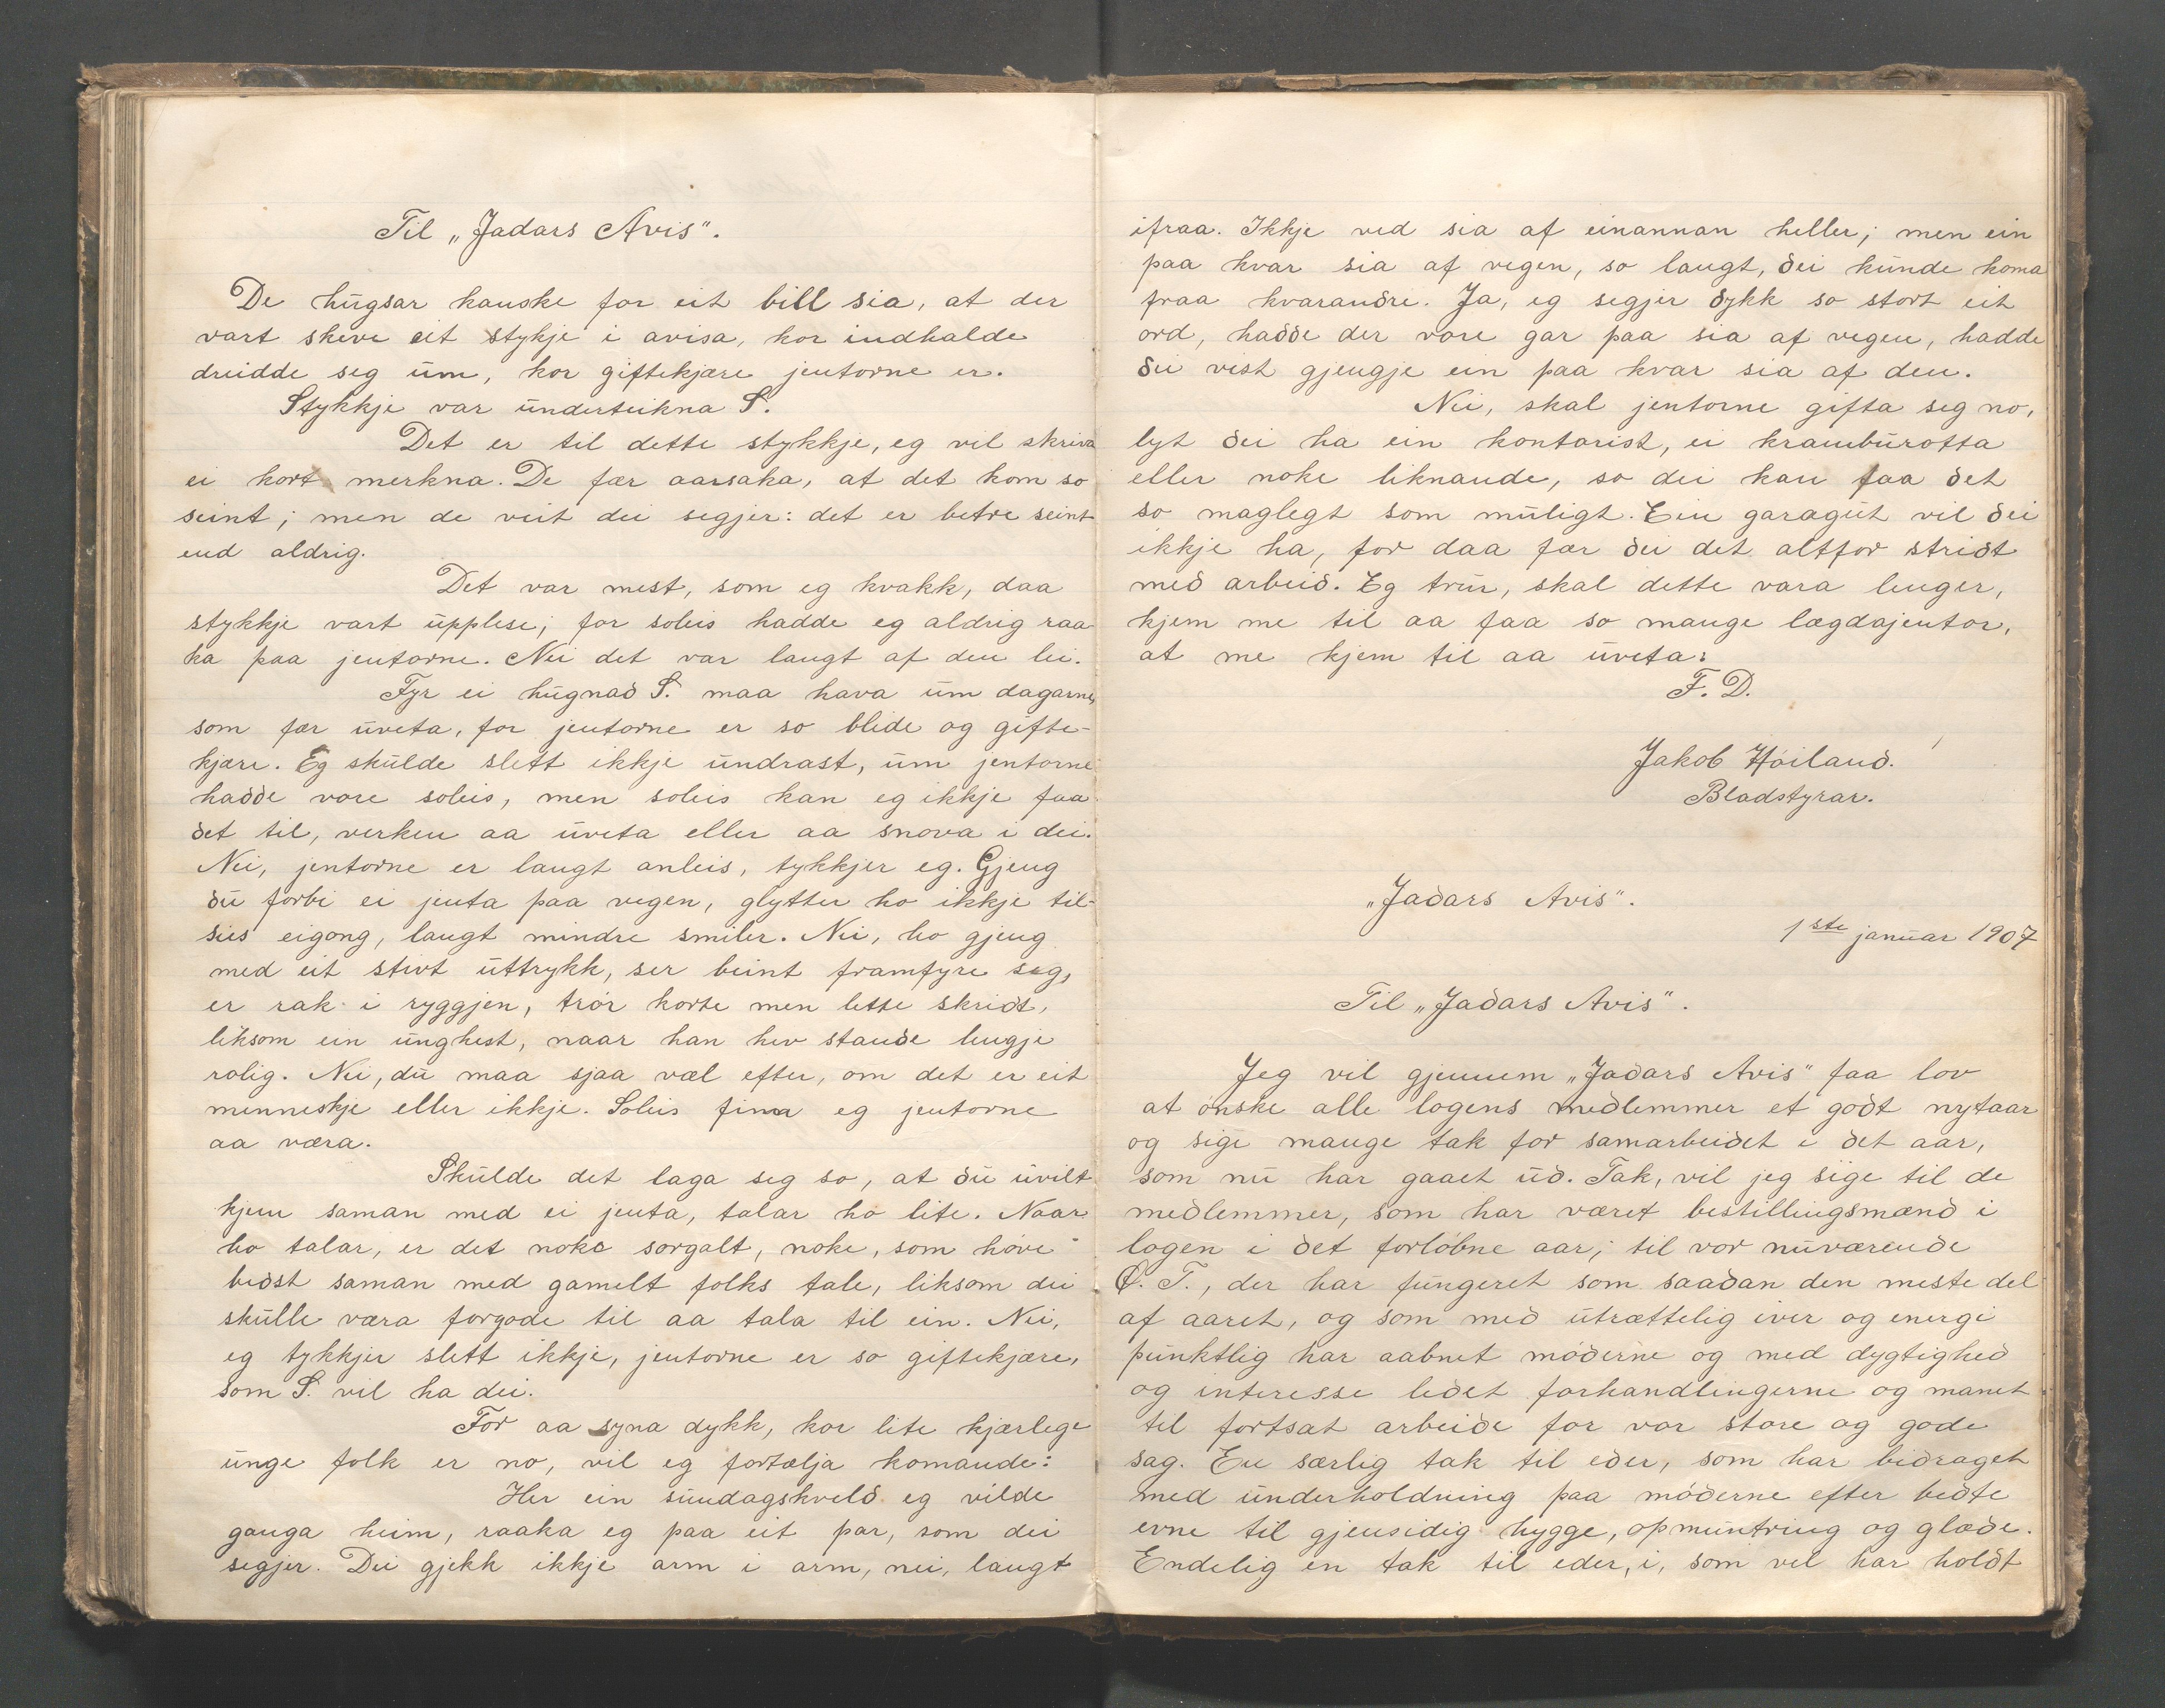 Til „Jadars Avis".
De hugsar kanske for eit bill sia, at der
vart skeve eit stykje i avisa, kor indhalde
dreidde seg um, kor giftekjære jentorne er.
Stykkje var underteikna S.
Det er til dette stykkje, eg vil skriva
ei kort merkna. De fær aarsaka, at det kom so
seint; men de veit dei segjer: det er betre seint
end aldrig.
Det var mest, som eg kvakk, daa
stykkje vart upplese; for soleis hadde eg aldrig raa-
ka paa jentorne. Nei det var langt af den lei.
Fyr ei hugnad S. maa hava um dagarne,
som fær uveta, for jentorne er so blide og gifte-
kjære. Eg skulde slett ikkje undrast, um jentorne
hadde vore soleis, men soleis kan eg ikkje faa
det til, verken aa uveta eller aa snova i dei.
Nei, jentorne er langt anleis, tykkjer eg. Gjeng
du forbi ei jenta paa vegen, glytter ho ikkje til-
sies eigong, langt mindre smiler. Nei, ho gjeng
med eit stivt uttrykk, ser beint framfyre seg,
er rak i ryggjen, trør korte men lette skridt,
liksom ein unghest, naar han hev stande lengje
rolig. Nei, du maa sjaa væl efter, om det er eit
menneskje eller ikkje. Soleis finna eg jentorne
aa væra.
Skulde det laga seg so, at du uvilt
kjem saman med ei jenta, talar ho lite. Naar
ho talar, er det noke sorgalt, noke, som høve
bedst saman med gamelt folks tale, liksom dei
skulle væra forgode til aa tala til ein. Nei,
eg tykkjer slett ikkje, jentorne er so giftekjære,
som S. vil ha dei.
For aa syna dykk, kor lite kjærlege
unge folk er no, vil eg fortælja komande:
Her ein sundagskveld eg vilde
ganga heim, raaka eg paa eit par, som dei
segjer. Dei gjekk ikkje arm i arm, nei, langt
ifraa. Ikkje ved sia af einannan heller; men ein
paa kvar sia af vegen, so langt, dei kunde koma
fraa kvarandre. Ja, eg segjer dykk so stort eit
ord, hadde der vore gar paa sia af vegen, hadde
dei vist gjengje ein paa kvar sia af den.
Nei, skal jentorne gifta seg no,
lyt dei ha ein kontorist, ei kramburotta
eller noke liknande, so dei kan faa det
so maglegt som muligt. Ein garagut vil dei
ikkje ha, for daa fær dei det altfor stridt
med arbeid. Eg trur, skal dette vara lenger,
kjem me til aa faa so mange lægdajentor,
at me kjem til aa uveta.
F. D.
Jakob Høiland.
Bladstyrar.
„Jadars Avis".
1ste januar 1907
Til „Jadars Avis".
Jeg vil gjennem „Jadars Avis" faa lov
at ønske alle logens medlemmer et godt nytaar
og sige mange tak for samarbeidet i det aar,
som nu har gaaet ud. Tak, vil jeg sige til de
medlemmer, som har været bestillingsmænd i
logen i det forløbne aar; til vor nuværende
C. T., der har fungeret som saadan den meste del
af aaret, og som med utrættelig iver og energi
punktlig har aabnet møderne og med dygtighed
og interesse ledet forhandlingerne og manet
til fortsat arbeide for vor store og gode
sag. En særlig tak til eder, som har bidraget
med underholdning paa møderne efter bedste
evne til gjensidig hygge, opmuntring og glæde.
Endelig en tak til eder, i, som vel har holdt